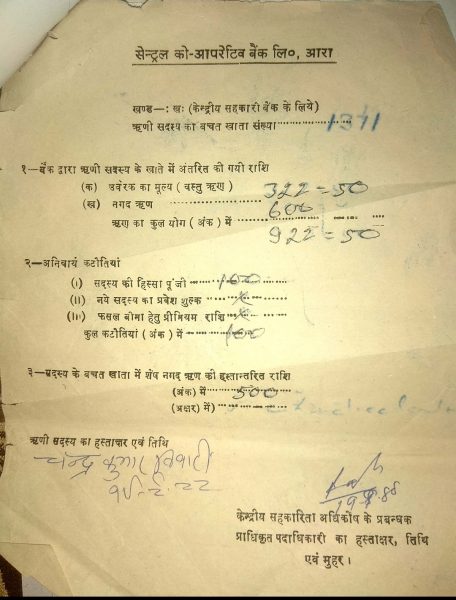 सेन्ट्रल को-आपरेटिव बैंक लि०, आरा
खण्ड—: खः (केन्द्रीय सहकारी बैंक के लिये)
ऋणी सदस्य का बचत खाता संख्या 1311
१—बैंक द्वारा ऋणी सदस्य के खाते में अंतरित की गयी राशि
(क) उर्वरक का मूल्य (वस्तु ऋण) 322=50
(ख) नगद ऋण 600
ऋण का कुल योग (अंक) में 922=50
२—अनिवार्य कटौतियां
(i) सदस्य की हिस्सा पूंजी 100
(ii) नये सदस्य का प्रवेश शुल्क x
(iii) फसल बीमा हेतु प्रीमियम राशि x
कुल कटौतियां (अंक) में 100
३—सदस्य के बचत खाता में शेष नगद ऋण की हस्तान्तरित राशि
(अंक) में 500
(अक्षर) में)
ऋणी सदस्य का हस्ताक्षर एवं तिथि
चन्द्र कुमार तिवारी
केन्द्रीय सहकारिता अधिकोष के प्रबन्धक
प्राधिकृत पदाधिकारी का हस्ताक्षर, तिथि
एवं मुहर ।